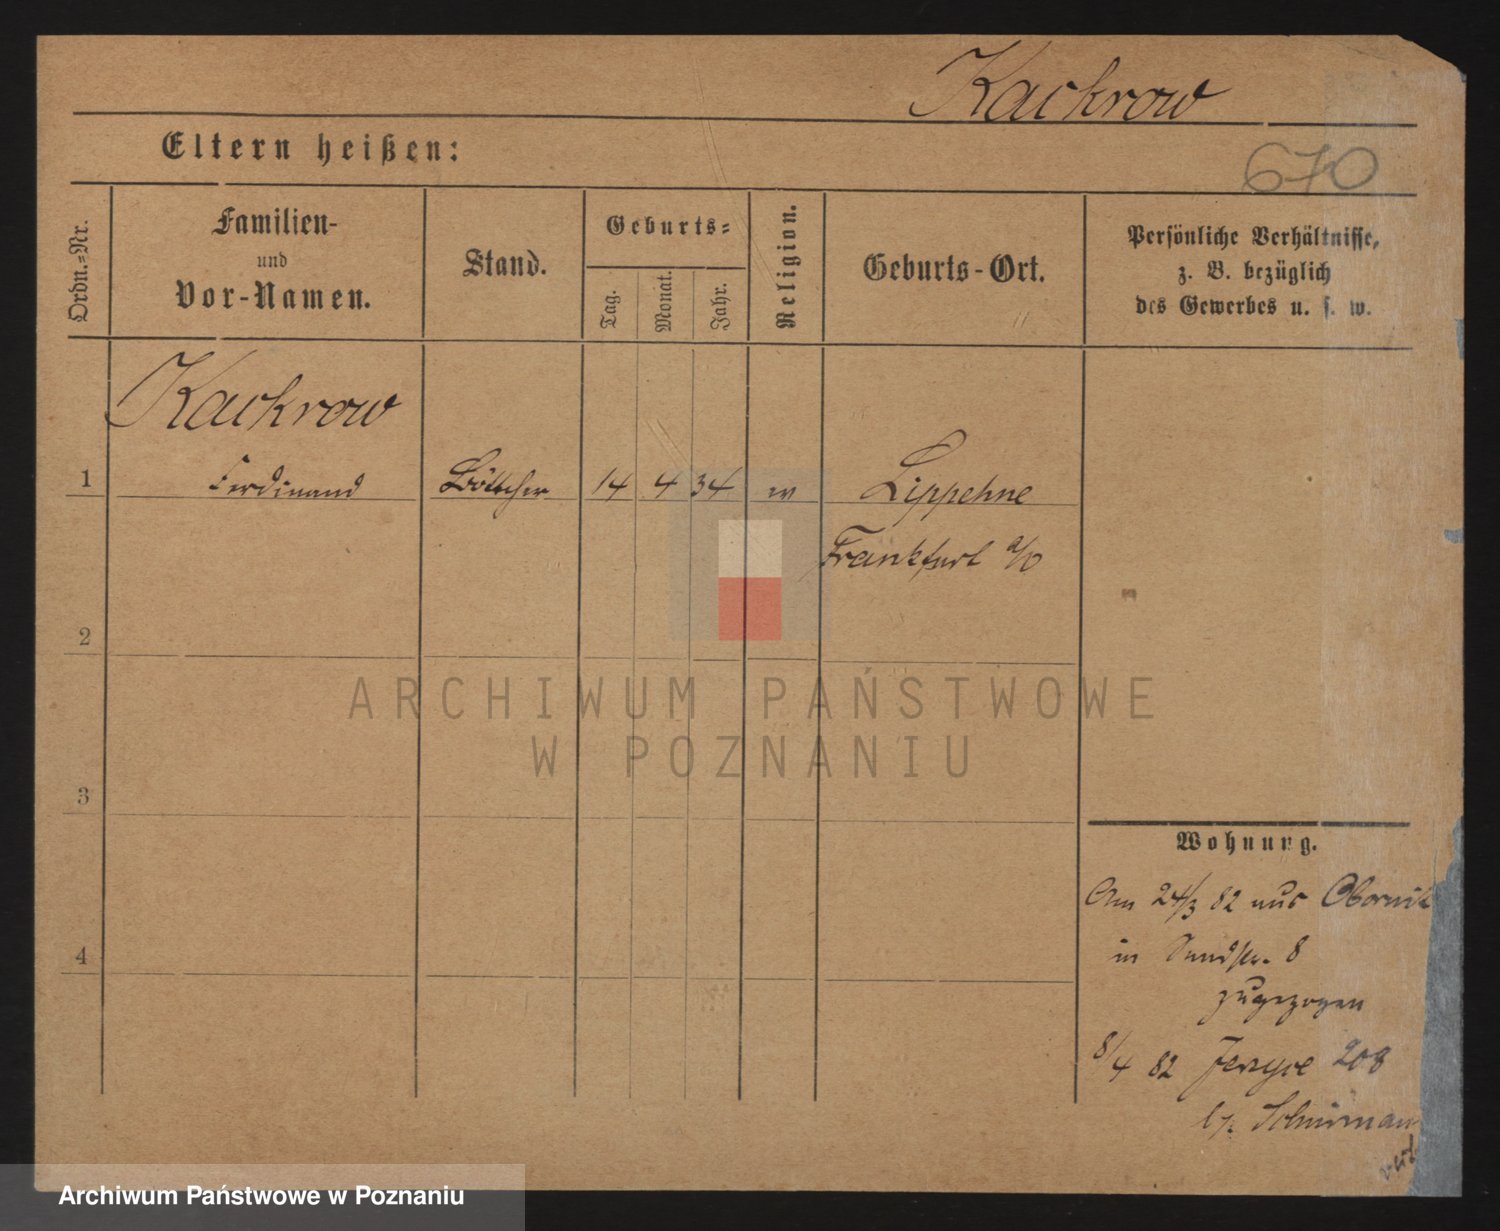 Kackrow
Eltern heißen:
670
Ordn.=Nr.
Familien-
und
Vor-Namen.
Stand.
Geburts=
Tag.
Monat.
Jahr.
Religion.
Geburts-Ort.
Persönliche Verhältnisse,
z. B. bezüglich
des Gewerbes u. s. w.
Kackrow
1 Ferdinand Böttcher 14 4 34 Lippehne
Frankfurt a/O
2
ARCHIWUM PAŃSTWOWE
W POZNANIU
3
Wohnung.
Am 24/3 82 aus Obornik
4
in Sandstr. 8
zugezogen
8/4 82 Jerzyce 208
Archiwum Państwowe w Poznaniu